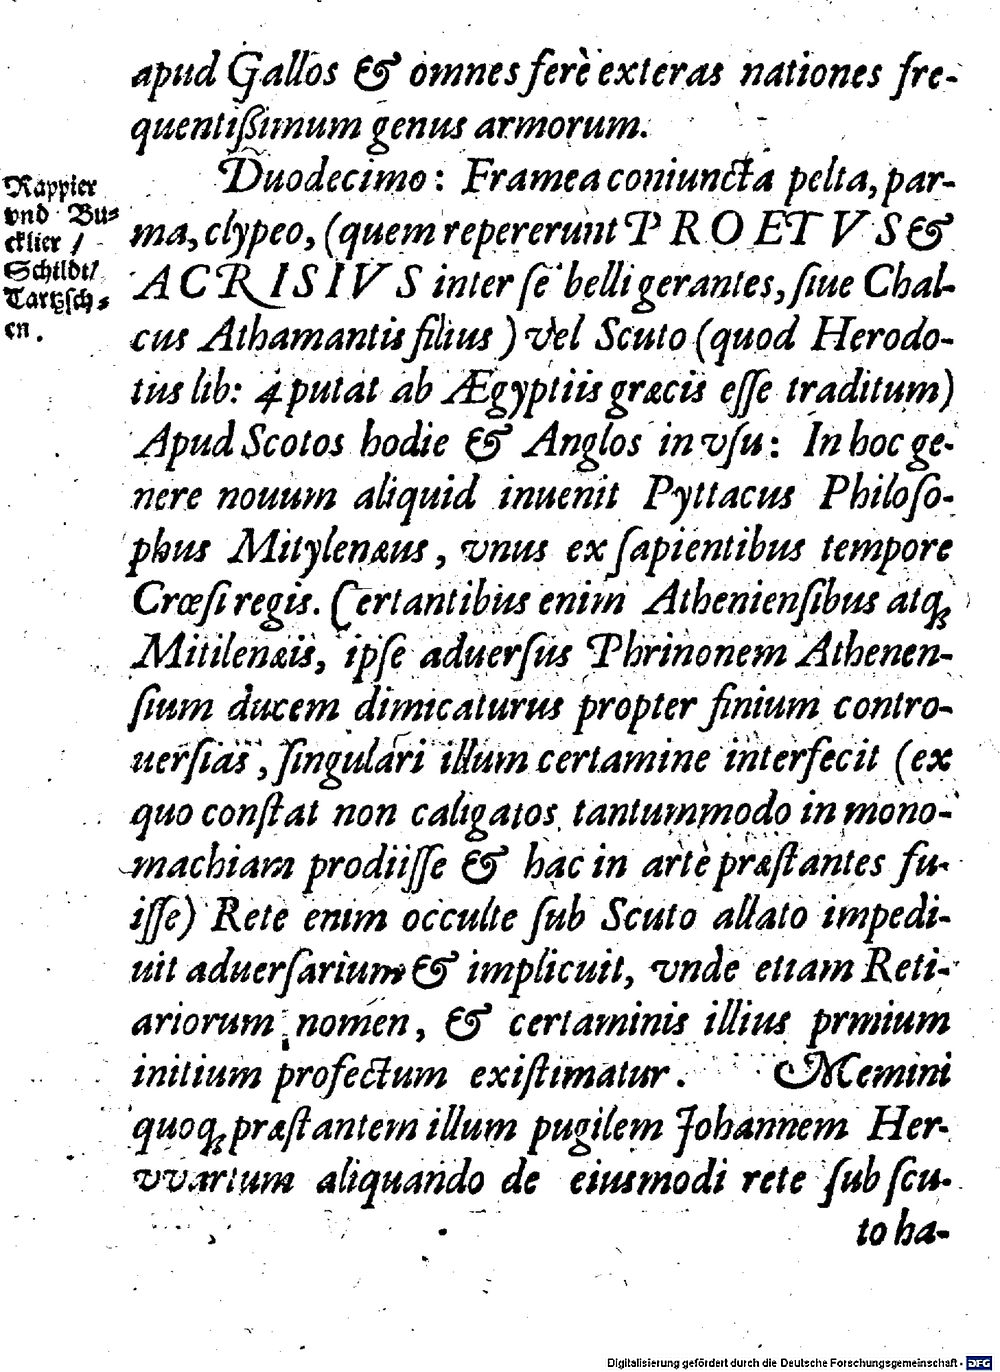 apud Gallos & omnes ferè exteras nationes fre-
quentißimum genus armorum.
Duodecimo: Framea coniuncta pelta, par-
Rappier
vnd Bu-
cklier /
Schildt/
Tartzsch-
en.
ma, clypeo, (quem repererunt PROETVS &
ACRISIVS inter se belligerantes, siue Chal-
cus Athamantis filius) vel Scuto (quod Herodo-
tus lib: 4 putat ab Ægyptiis græcis esse traditum)
Apud Scotos hodie & Anglos in vsu: In hoc ge-
nere nouum aliquid inuenit Pyttacus Philoso-
phus Mitylenæus, vnus ex sapientibus tempore
Crœsi regis. Certantibus enim Atheniensibus atq;
Mitilenæis, ipse aduersus Phrinonem Athenen-
sium ducem dimicaturus propter finium contro-
uersias, singulari illum certamine interfecit (ex
quo constat non caligatos tantummodo in mono-
machiam prodiisse & hac in arte præstantes fu-
isse) Rete enim occulte sub Scuto allato impedi-
uit aduersarium & implicuit, vnde etiam Reti-
ariorum nomen, & certaminis illius prmium
initium profectum existimatur. Memini
quoq; præstantem illum pugilem Johannem Her-
vvartum aliquando de eiusmodi rete sub scu-
to ha-
Digitalisierung gefördert durch die Deutsche Forschungsgemeinschaft - DFG